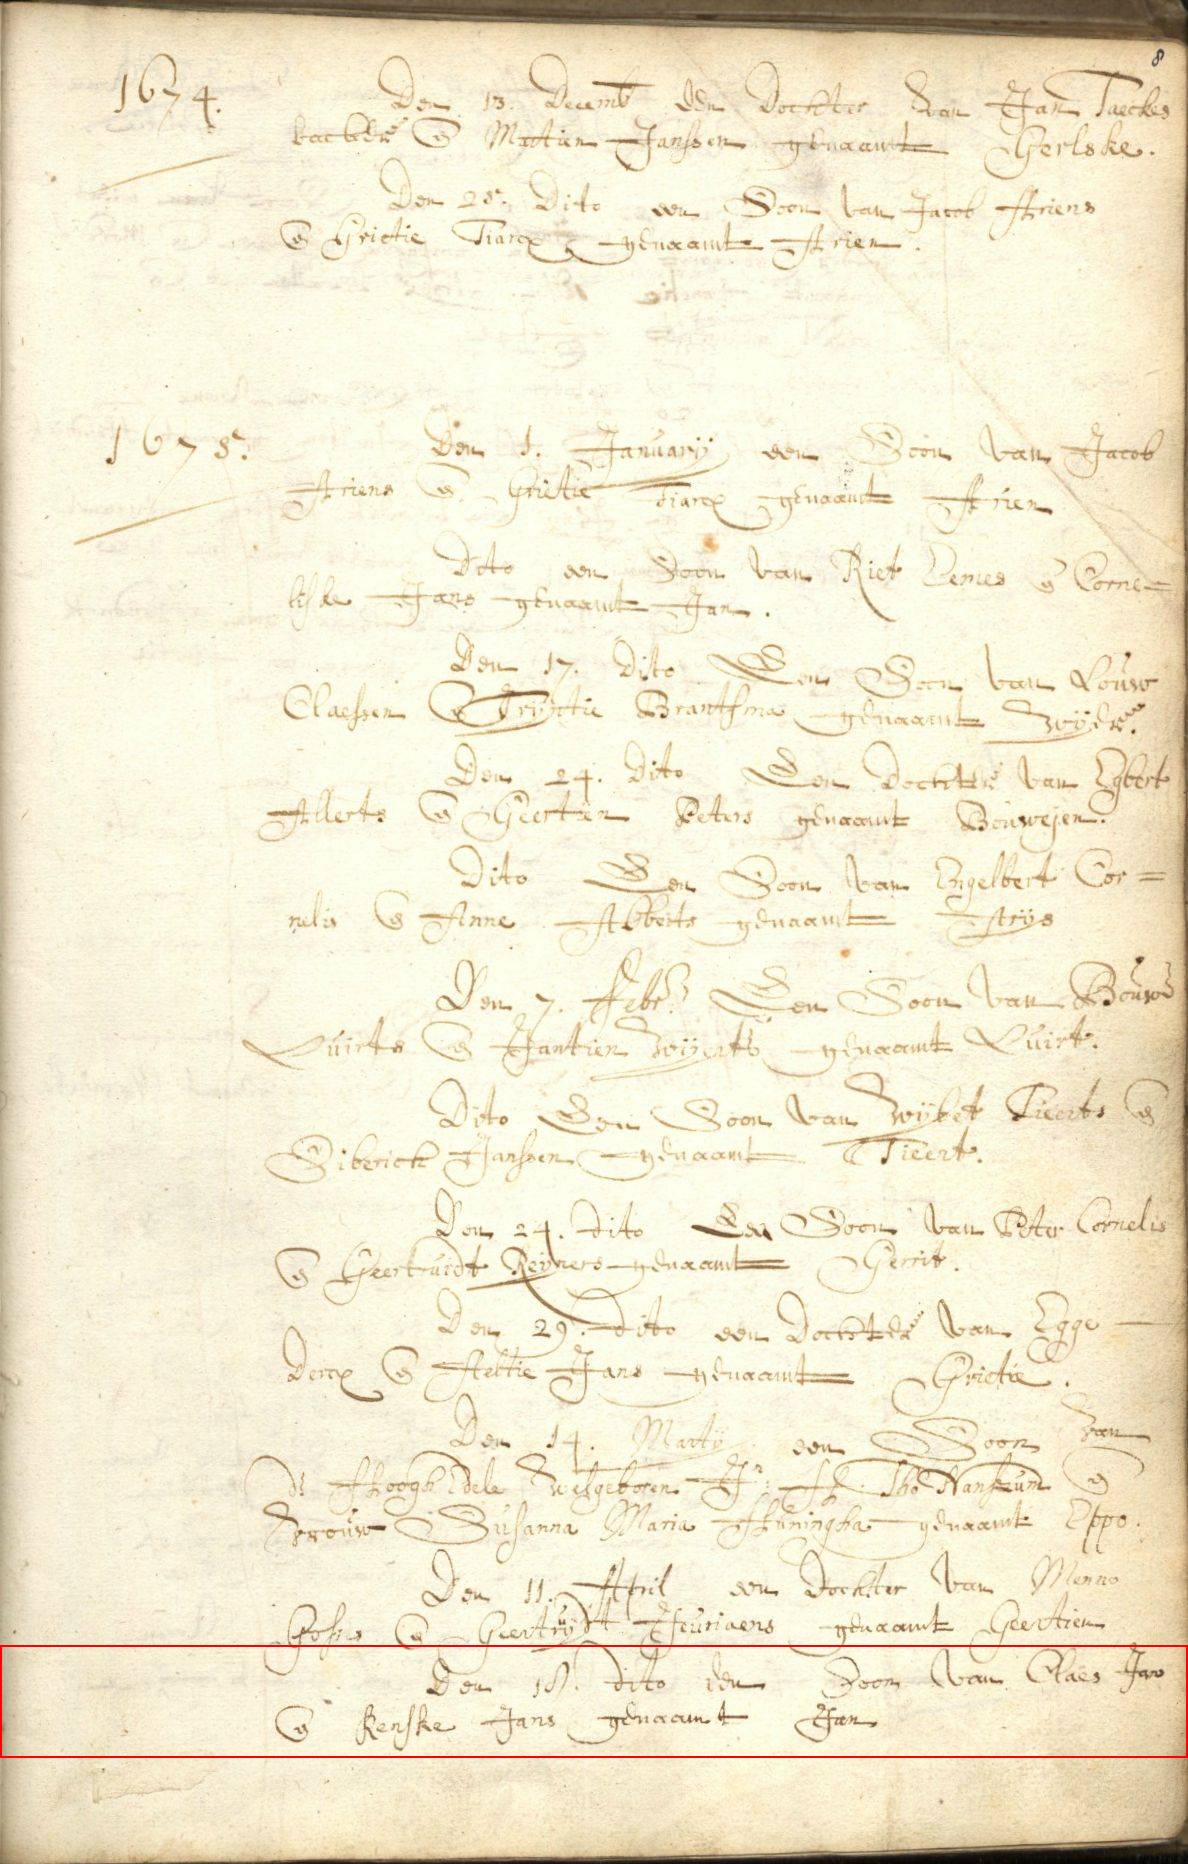 8
1674.
Den 13. Decemb een Dochter van Jan Taeckes
backer en Martien Janssen genaamt Gerlske.
Den 25. Dito een Soon van Jacob Ariens
en Grietie Tiarcx genaamt Arien.
1675.
Den 1. January een Soon van Jacob
Ariens en Grietie Tiarcx genaamt Arien
Dito een Soon van Riet Eemes en Corne=
liske Jans genaamt Jan.
Den 17. Dito Een Soon van Louw
Claessen en Tryntie Brantsma genaamt
Den 24. Dito Een Dochter van Egbert
Allerts en Geertien Peters genaamt Bouwejen.
Dito Een Soon van Engelbert Cor=
nelis en Anne Abberts genaamt
Den 7. Febr: Een Soon van Bouw
Luirts en Jantien Wyerts genaamt Luirt.
Dito Een Soon van Wybet Tieerts en
Siberich Janssen genaamt Tieert.
Den 24. Dito Een Soon van Peter Cornelis
en Geertruidt Reyners genaamt Gerrit.
Den 29. Dito een Dochter van Egge
Dercx en Aeltie Jans genaamt Grietie.
Den 14. Marty een Soon van
de Hoogh Edele Welgeboren Jr. Tho Nansum en
Vrouw Susanna Maria Huninga genaamt Eppo.
Den 11. April een Dochter van Menno
Gosses en Geertruydt Jeuriaens genaamt Geertien
Den 18. Dito een Soon van Claes Jans
en Renske Jans genaamt Jan